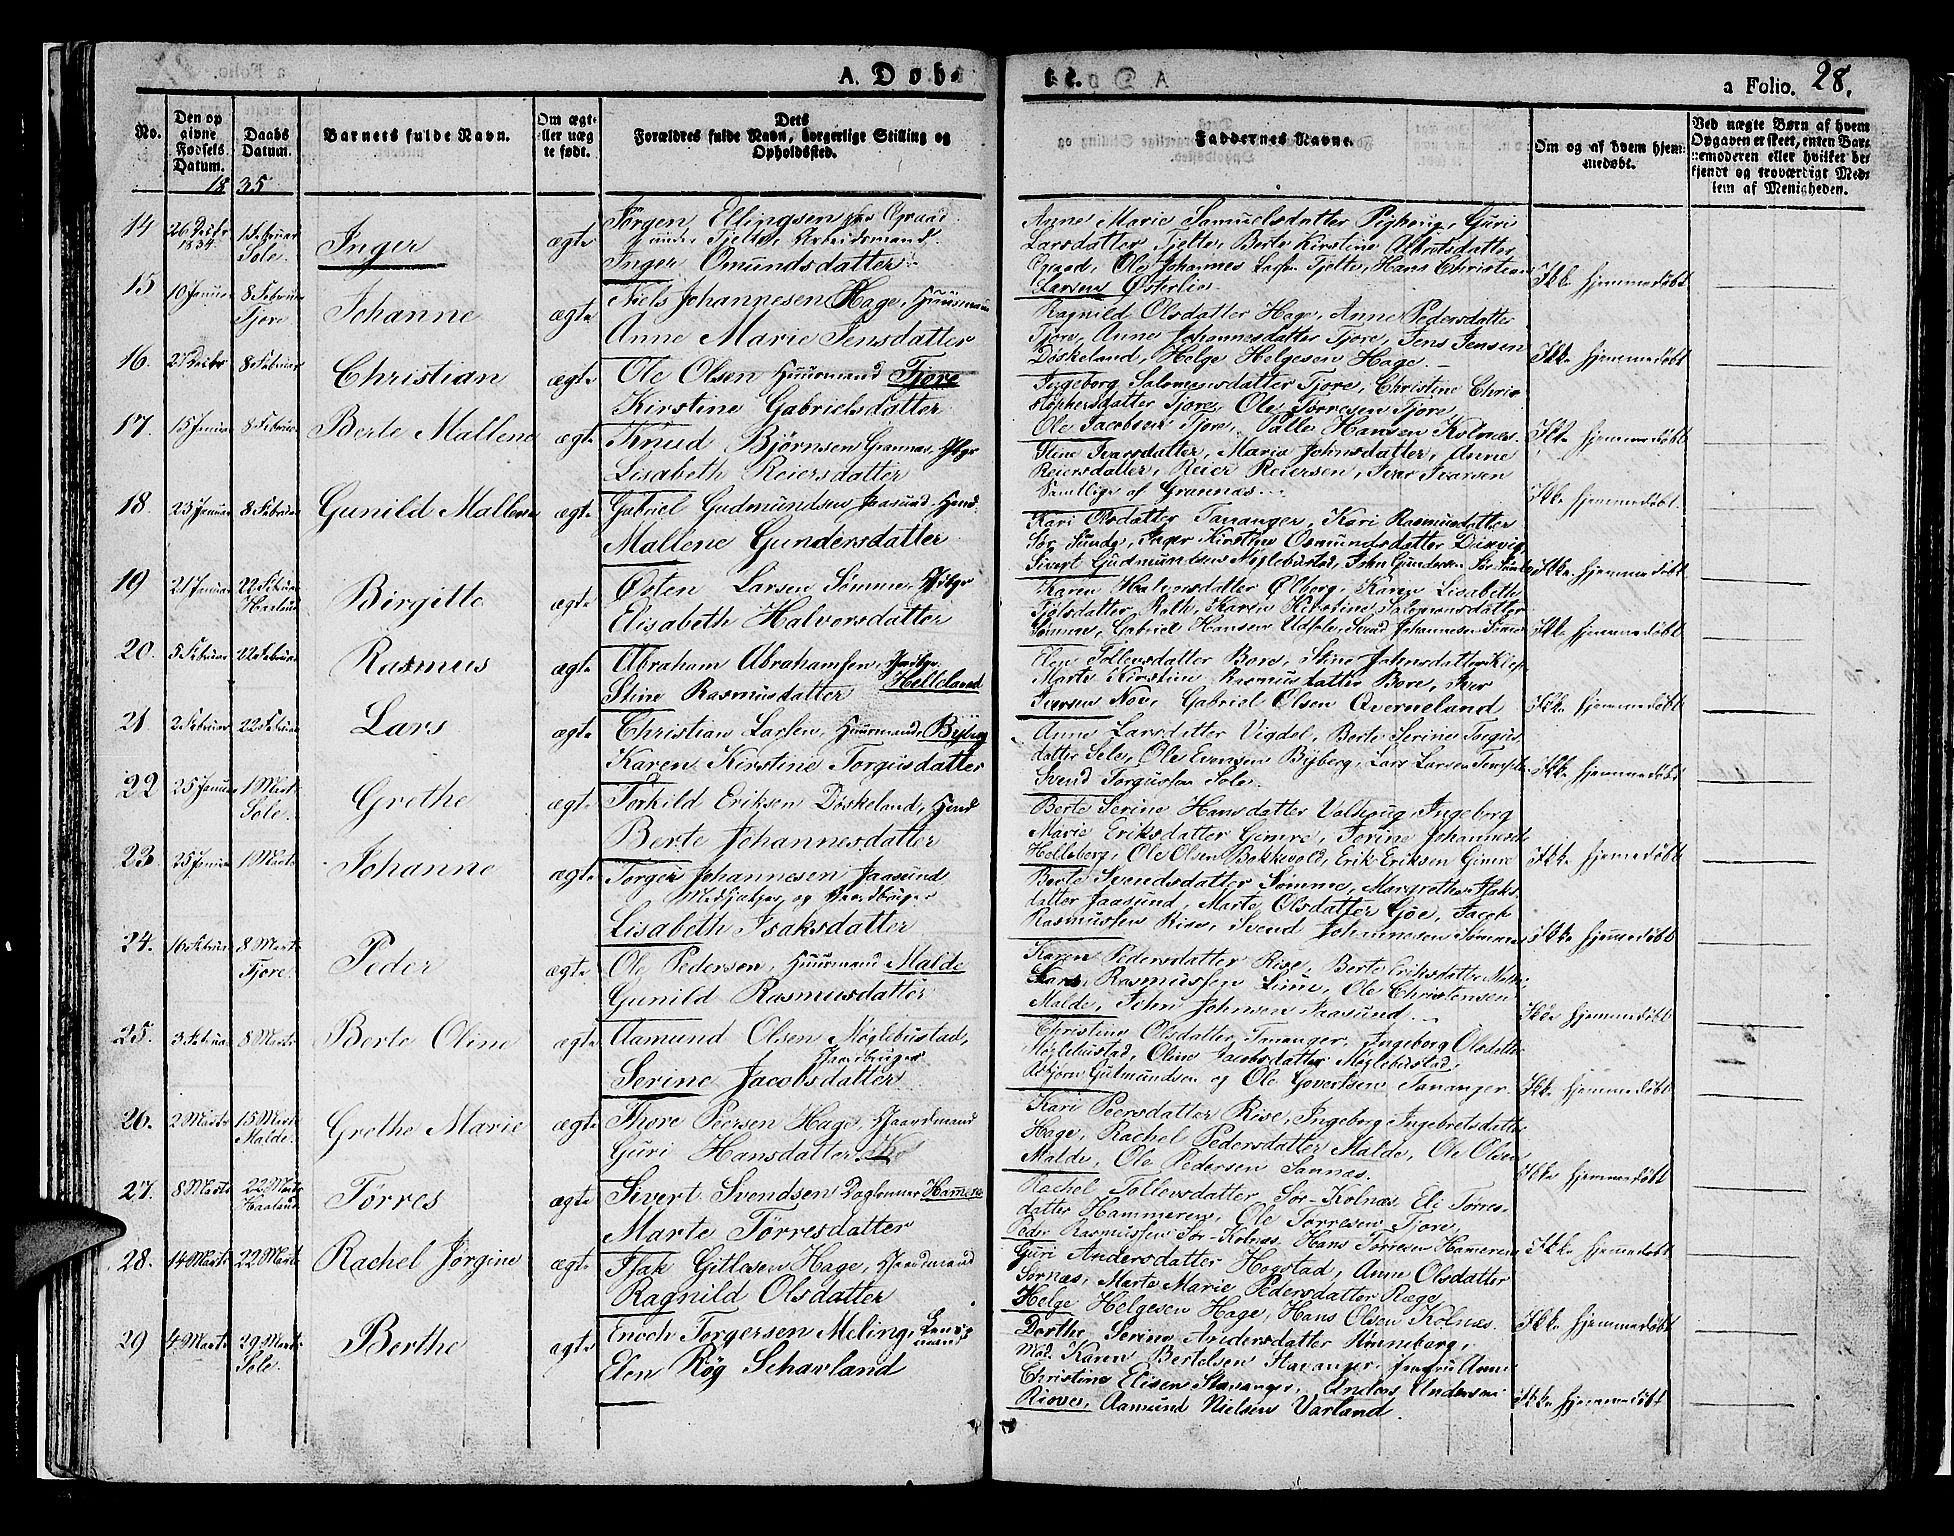 A. Døb-
te.
a Folio. 28.
No.
Den op
givne
Fødsels
Datum.
Daabs
Datum.
18 35
Barnets fulde Navn.
Om ægt-
eller uæg
te født.
Dets
Forældres fulde Navn, borgerlige Stilling og
Opholdssted.
Faddernes Navne.
Om og af hvem hjem-
medøbt.
Ved uægte Børn af hvem
Opgaven er skeet, enten Bar-
nemoderen eller hvilket be
kjendt og troværdigt Med-
lem af Menigheden.
14 26 Decbr 1834. 1 Februar Sole. Inger ægte Jørgen Ellingsen
under Tjelte, Arbeidsmand.
Inger Omundsdatter
Anne Marie Samuelsdatter, Guri
Larsdatter Tjelte, Berte Kirstine
Ole Johannes Tjelte, Hans Christian
Larsen Østerlie.
Ikke hjemmedøbt
15 10 Januar 8 Februar Tjore Johanne ægte Niels Johannesen Hage, Huusmand
Anne Marie Jensdatter
Ragnild Olsdatter Hage, Anne Pedersdatter
Tjore, Anne Johannesdatter Tjore, Jens Jensen
Døskeland, Helge Helgesen Hage.
Ikke hjemmedøbt
16. 27 Decbr 8 Februar Christian ægte Ole Olsen Huurmand Tjore
Kirstine Gabrielsdatter
Ingeborg Salomensdatter Tjore, Christine Chris-
tophersdatter Tjore, Ole Torresen Tjore,
Ole Jacobsen Tjore, Palle Hansen Kolnæs.
Ikke hjemmedøbt
17. 15 Januar 8 Februar Berte Mallene ægte Knud Bjørnsen Grannæs,
Lisabeth Reiersdatter
Stine Ivarsdatter, Marie Johnsdatter, Anne
Reiersdatter, Reier Reiersen, Ivar Ivarsen
Samtlige af Grannæs.
Ikke hjemmedøbt.
18 23 Januar 8 Februar Gunild Mallene ægte Gabriel Gudmundsen Jaasund
Mallene Gundersdatter
Kari Olsdatter Tananger, Kari Rasmusdatter
Sør Sunde, Inger Kirstine Osmundsdatter
Sivert Gudmundsen Møglebustad, John Gundersen
Ikke hjemmedøbt
19 21 Januar 22 Februar Birgitte ægte Østen Larsen Sømme,
Elisabeth Halvorsdatter
Karen Ølberg, Karen Lisabeth
Roth, Karen Kirstine Salomonsdatter
Sømme, Gabriel Hansen, Svend Johannesen Sømme
Ikke hjemmedøbt
20. 5 Februar 22 Februar Rasmus ægte Abraham Abrahamsen,
Stine Rasmusdatter Helleland
Elen Tollevsdatter Bore, Stine Johnsdatter
Marte Kirstine Rasmusdatter Bore, Iver
Iversen, Gabriel Olsen Qverneland
Ikke hjemmedøbt
21 2 Februar 22 Februar Lars ægte Christian Larsen, Huurmand, Byberg
Karen Kirstine Torgusdatter
Anne Larsdatter Vigdel, Berte Serine Torgus-
datter Sele, Ole Evensen Byberg, Lars Larsen
Svend Torgussen Sole.
Ikke hjemmedøbt
22 25 Januar 1 Marts Sole. Grethe ægte Torkild Eriksen Døskeland,
Berte Johannesdatter
Berte Serine Hansdatter, Ingeborg
Marie Eriksdatter Gimre, Torine
Helleberg, Ole Olsen, Erik Eriksen Gimre
Ikke hjemmedøbt
23. 25 Januar 1 Marts Johanne ægte Torger Johannesen Jaasund
Medhjelper og Gaardbruger
Lisabeth Isaksdatter
Berte Svendsdatter Sømme, Margrethe Isaks-
datter Jaasund, Marte Olsdatter Gjøe, Jacob
Rasmussen Rise, Svend Johannesen Sømme
Ikke hjemmedøbt
24. 16 Februar 8 Marts Tjore. Peder ægte Ole Pedersen, Huurmand Malde
Gunild Rasmusdatter
Karen Pedersdatter Rise, Berte Eriksdatter
Lars Rasmussen, Ole Christensen
Malde, John Johnsen Jaasund.
Ikke hjemmedøbt
25. 3 Februar 8 Marts Berte Oline ægte Aamund Olsen Møglebustad,
Gaardbruger
Serine Jacobsdatter
Christine Olsdatter Tananger, Ingeborg Olsdatter
Møglebustad, Oline Jacobsdatter Møglebustad,
Asbjørn Gulmundsen og Ole Govertsen Tananger.
Ikke hjemmedøbt
26. 2 Marts 15 Marts Malde. Grethe Marie ægte Thore Peersen Hage, Gaardmand
Guri Hansdatter
Kari Peersdatter Rise, Ingeborg Ingebretsdatter
Hage, Rachel Pedersdatter Malde, Ole Olsen
Malde, Ole Pedersen Sannæs.
Ikke hjemmedøbt
27. 8 Marts 22 Marts Haaland Tørres ægte Sivert Svendsen Daglønner Hammeren
Marte Tørresdatter
Rachel Tollevsdatter Sør-Kolnæs, Eli Tørres-
datter Hammeren, Ole Torresen Tjore,
Peder Rasmussen Sør-Kolnæs, Hans Tørresen Hameren
Ikke hjemmedøbt
28. 14 Marts 22 Marts Rachel Jørgine ægte Isak Gitlesen Hage, Gaardmand
Ragnild Olsdatter
Guri Andersdatter Hogstad, Anne Olsdatter
Sørnæs, Marte Marie Pedersdatter Ræge
Helge Helgesen Hage, Hans Olsen Kolnæs.
Ikke hjemmedøbt
29 4 Marts 29 Marts Sole. Berthe ægte Enoch Torgersen Meling,
Elen Røg Schavland
Dorthe Serine Andersdatter
Mad. Karen Bertelsen Stavanger, Jomfru Anne
Christine Elisen Stavanger, Anders Andersen
Aamund Nielsen Varland.
Ikke hjemmedøbt